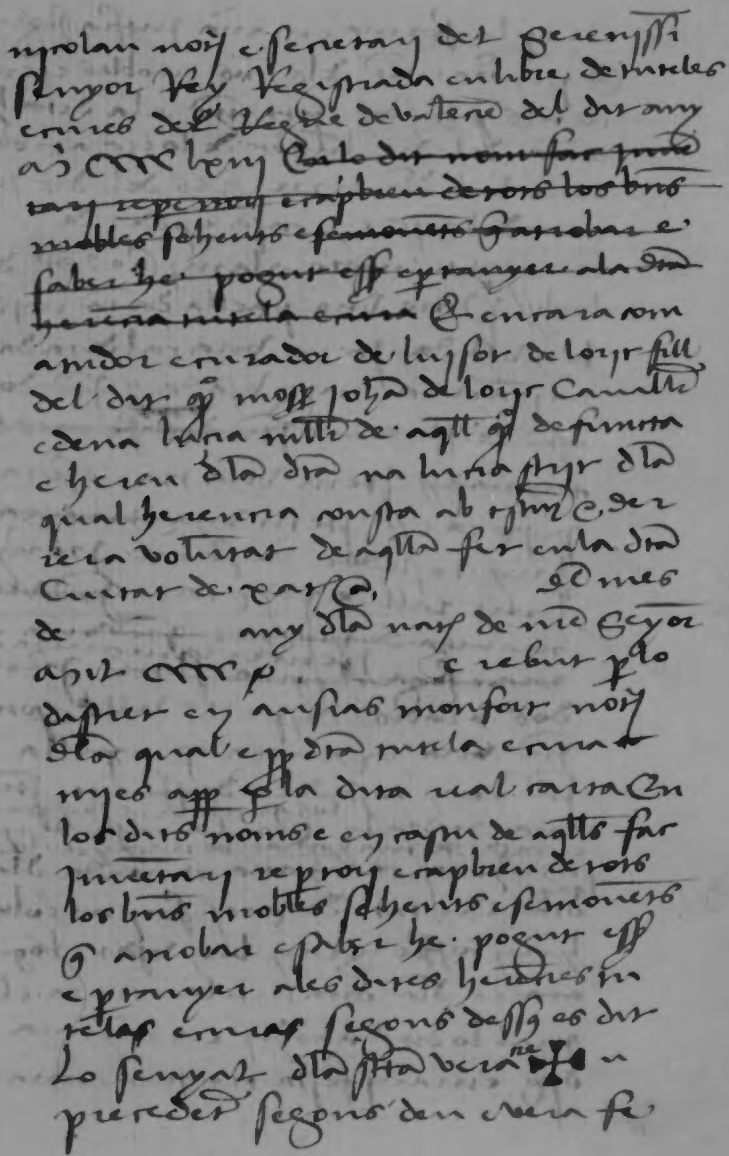 nicolau not̄ e secretari del Sereniss̄i
senyor Rey Registrada en libre de tuteles
e cures del Regne de valēcie del dit any
Mº CCCC lxiii En lo dit nom fac jnuē
tari repertori e capbreu de tots los bn̄s
mobles sehents e semouēts q̄ a trobar e
saber he pogut ess̄ e p̄tanyer a la dt̄a
herēcia tutela e cura E encara com
a tudor e curador de luis de loriç fill
del dit qº moss̄ johā de loriç Cauall̄r
e de na lucia mll̄r de aq̄ll qº defuncta
e hereu dl̄a dt̄a na lucia dl̄a
qual herencia consta ab e der
rera volūtat de aq̄lla fet en la dt̄a
Ciutat de xatiua, mes
de any dl̄a nat̄ de nr̄e Seyōr
Mil CCCC e rebut p̄ lo
discret en ausias monfort not̄
dl̄a qual dt̄a tutela e cura
mjes app̄ p̄ la dita real carta En
los dits noms e en cascu de aq̄lls fac
jnuētari rep̄tori e capbreu de tots
los bn̄s mobles sehents e semouēts
q̄ a trobar e saber he pogut ess̄
e p̄tanyer a les dites herēcies tu
telas e curas segons dess̄ es dit
Lo senyal dl̄a st̄a vera ✠ u
precedēt segons deu e vera fe